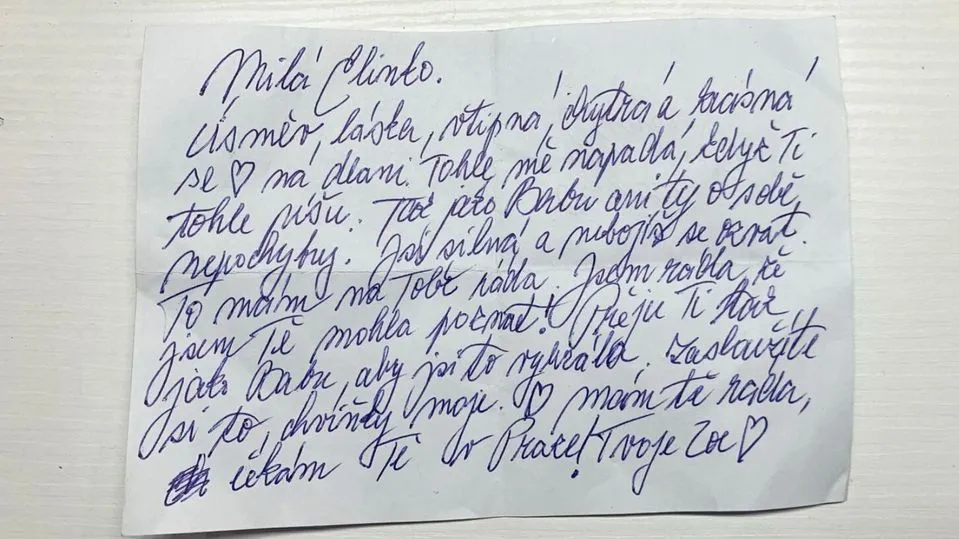 Milá Elinko.
Úsměv, láska, vtipná, chytrá a krásná
se ♡ na dlani. Tohle mě napadá, když Ti
tohle píšu. Tak jako Babu ani ty o sobě
nepochybuj. Jsi silná a nebojíš se ozvat.
To mám na Tobě ráda. Jsem ráda, že
jsem Tě mohla poznat! Přeju Ti tak
jako Babu, aby jsi to vyhrála. Zasloužíte
si to, holky moje. ♡ mám tě ráda,
čekám Tě v Praze! Tvoje Zoe ♡